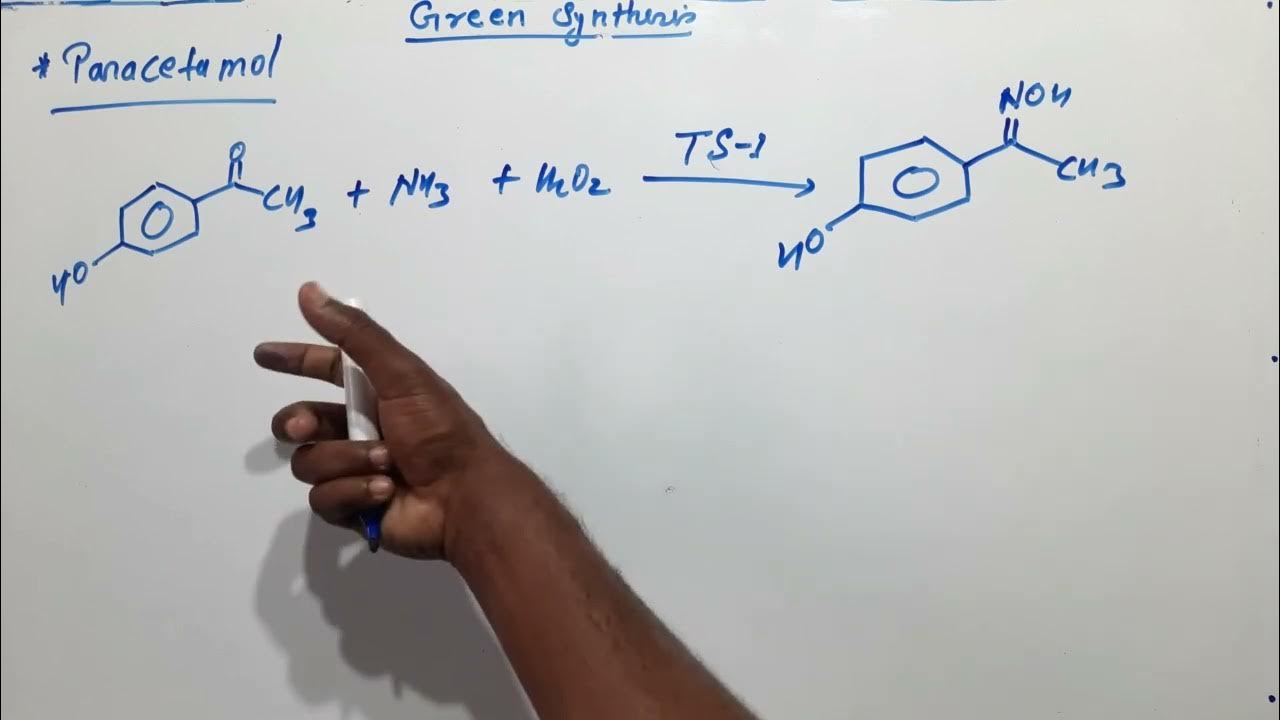 Green Synthesis
* Paracetamol
O
CH3 + NH3 + H2O2
HO
TS-1
NOH
CH3
HO